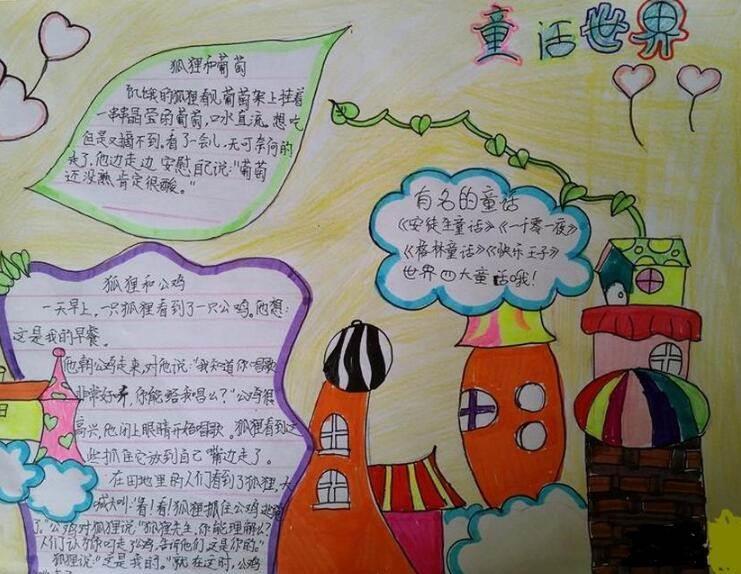 童话世界
狐狸和葡萄
饥饿的狐狸看见葡萄架上挂着
一串串晶莹的葡萄,口水直流。想吃
但是又摘不到。看了一会儿,无可奈何的
走了,他边走边安慰自己说:"葡萄
还没熟肯定很酸。"
有名的童话
《安徒生童话》《一千零一夜》
《格林童话》《快乐王子》
世界四大童话哦!
狐狸和公鸡
一天早上,一只狐狸看到了一只公鸡。他想:
这是我的早餐。
他朝公鸡走来,对他说:"我知道你唱歌
非常好听,你能给我唱么?"公鸡很
高兴,他闭上眼睛开始唱歌。狐狸看到这
些抓住它放到自己嘴边走了。
在田地里的人们看到了狐狸,大
喊大叫:"看!看!狐狸抓住公鸡逃
了。"公鸡对狐狸说:"狐狸先生,你能理解么?
人们认为你叼走了公鸡,告诉他们这是你的。"
狐狸说:"这是我的。"就在这时,公鸡